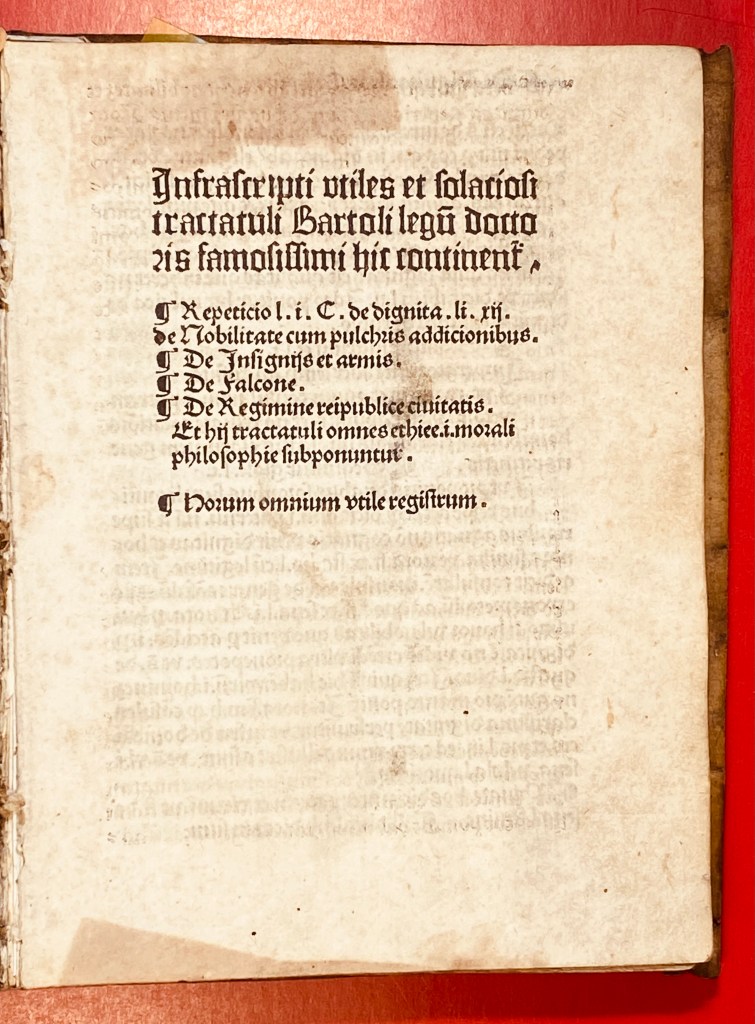 Infrascripti vtiles et solaciosi
tractatuli Bartoli legū docto
ris famosissimi hic continent᷑.
¶ Repeticio l. i. C. de dignita. li. xij.
de Nobilitate cum pulchris addicionibus.
¶ De Insignijs et armis.
¶ De Falcone.
¶ De Regimine reipublice ciuitatis.
Et hij tractatuli omnes ethice.i.morali
philosophie subponuntur.
¶ Horum omnium vtile registrum.